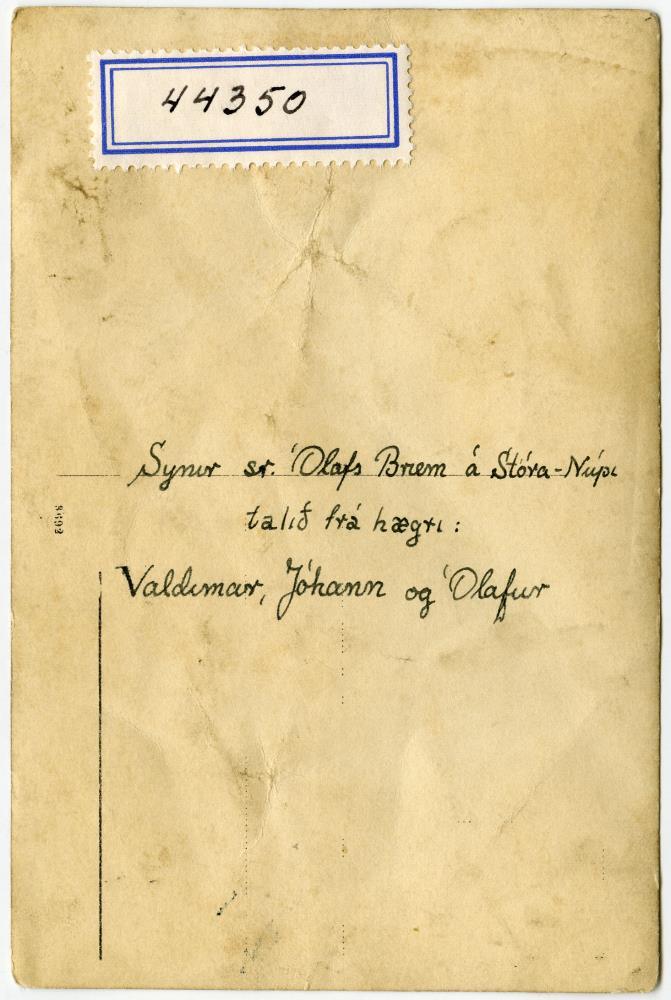 44350
Synir sr. Ólafs Briem á Stóra-Núpi
talið frá hægri:
Valdimar, Jóhann og Ólafur